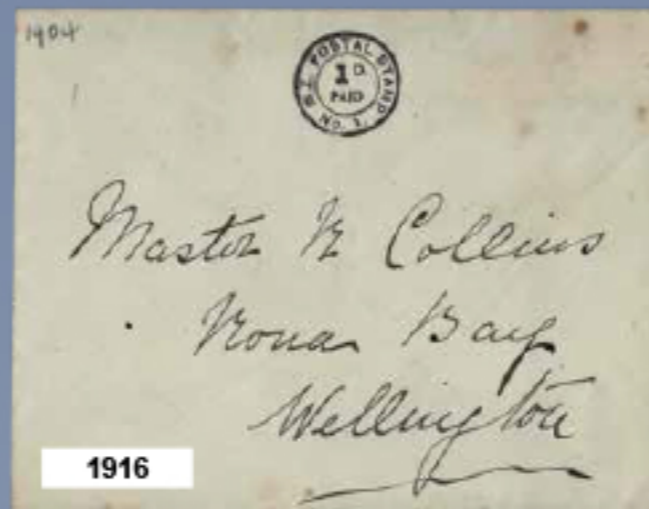 1904
N.Z. POSTAL STAMP
1D.
PAID
No. 1.
Master N Collins
Rona Bay
Wellington
1916